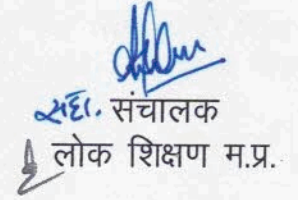 सहा. संचालक
लोक शिक्षण म.प्र.